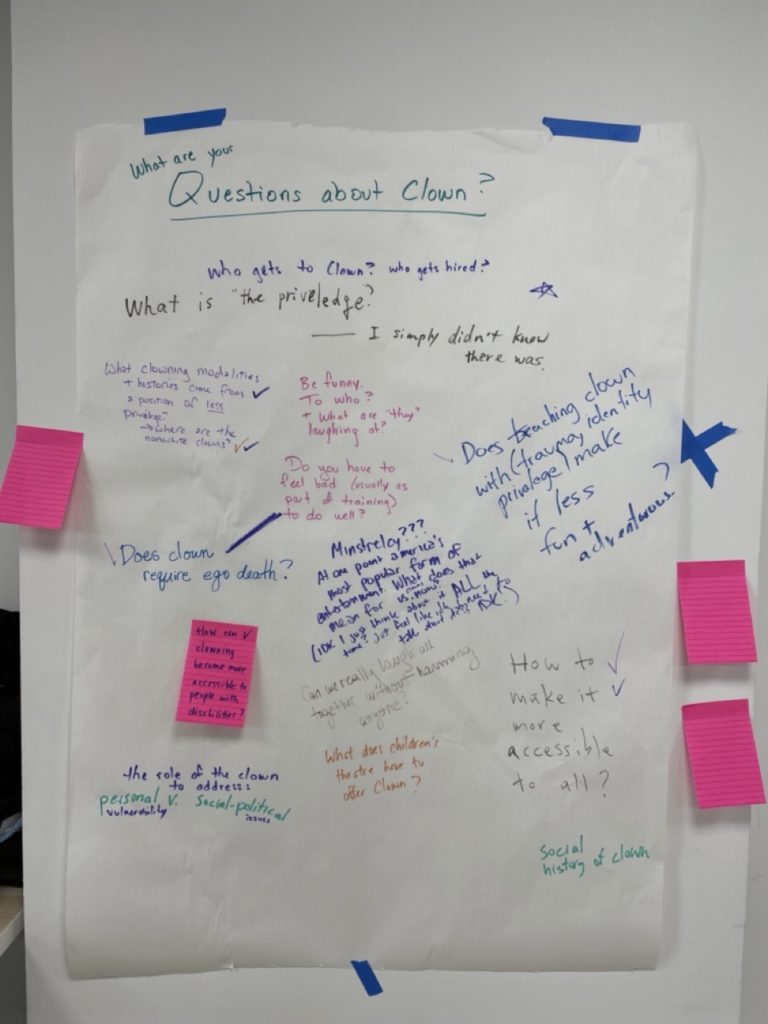 What are your
Questions about Clown?
who gets to Clown? who gets hired?
What is "the priviledge?
— I simply didn't know
there was.
What clowning modalities
+ histories come from
a position of less
privilege?
→ where are the
nonwhite clowns?
Be funny.
To who?
+ What are "they"
laughing at?
Does teaching clown
with (trauma, identity
privalage) make
it less
fun +
adventorous?
Do you have to
feel bad (usually as
part of training)
to do well?
Does clown
require ego death?
Minstrelsy???
At one point america's
most popular form of
entertainment. What does that
mean for us
(IDK I just think about it ALL the
time? just feel like we need to
talk about it?? IDK!)
How can
clowning
become more
accessible to
people with
disabilities?
Can we really laugh all
together without harming
anyone?
How to
make it
more
accessible
to all?
What does children's
theatre have to
offer Clown?
the role of the clown
to address:
personal v. social-political
vulnerability issues
social
history of clown